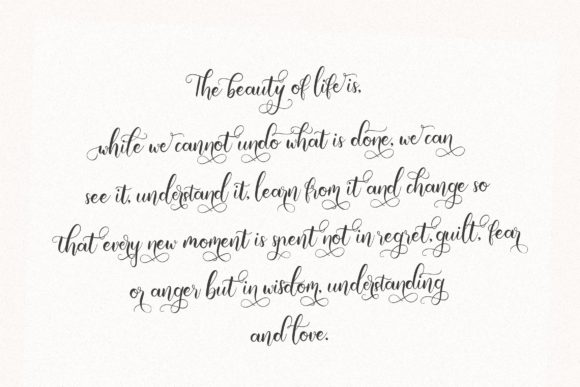 The beauty of life is,
while we cannot undo what is done, we can
see it, understand it, learn from it and change so
that every new moment is spent not in regret, guilt, fear
or anger but in wisdom, understanding
and love.